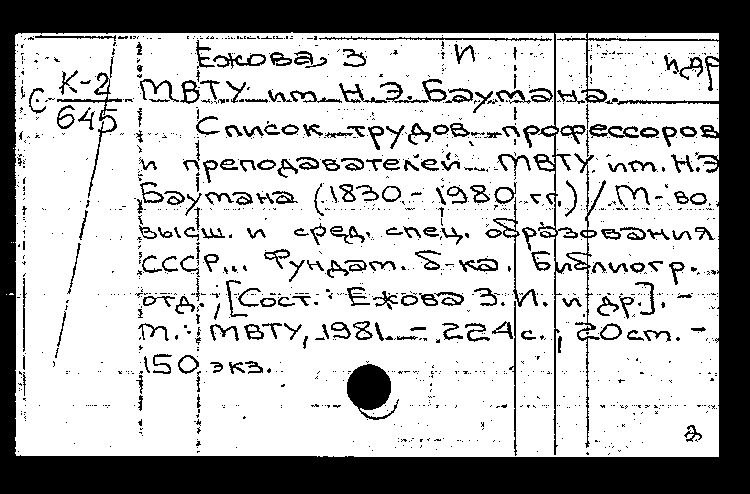 Ежова З И и др
С К-2
645
МВТУ им. Н.Э. Баумана.
Список трудов профессоров
и преподавателей МВТУ им. Н.Э
Баумана (1830-1980 гг.) / М-во
высш. и сред. спец. образования
СССР... Фундам. б-ка. Библиогр.
отд.; [Сост.: Ежова З.И. и др.]. -
М.: МВТУ, 1981. - 224 с.; 20 см. -
150 экз.